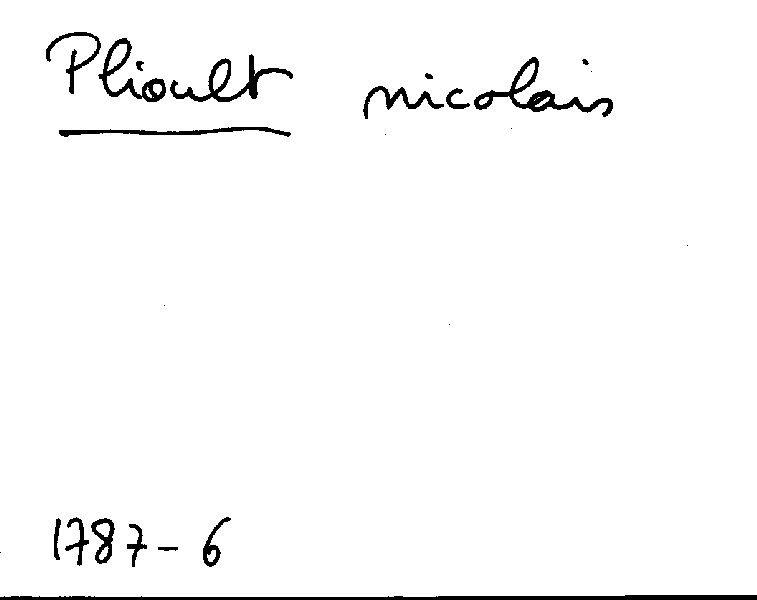 Plioult nicolais
1787-6